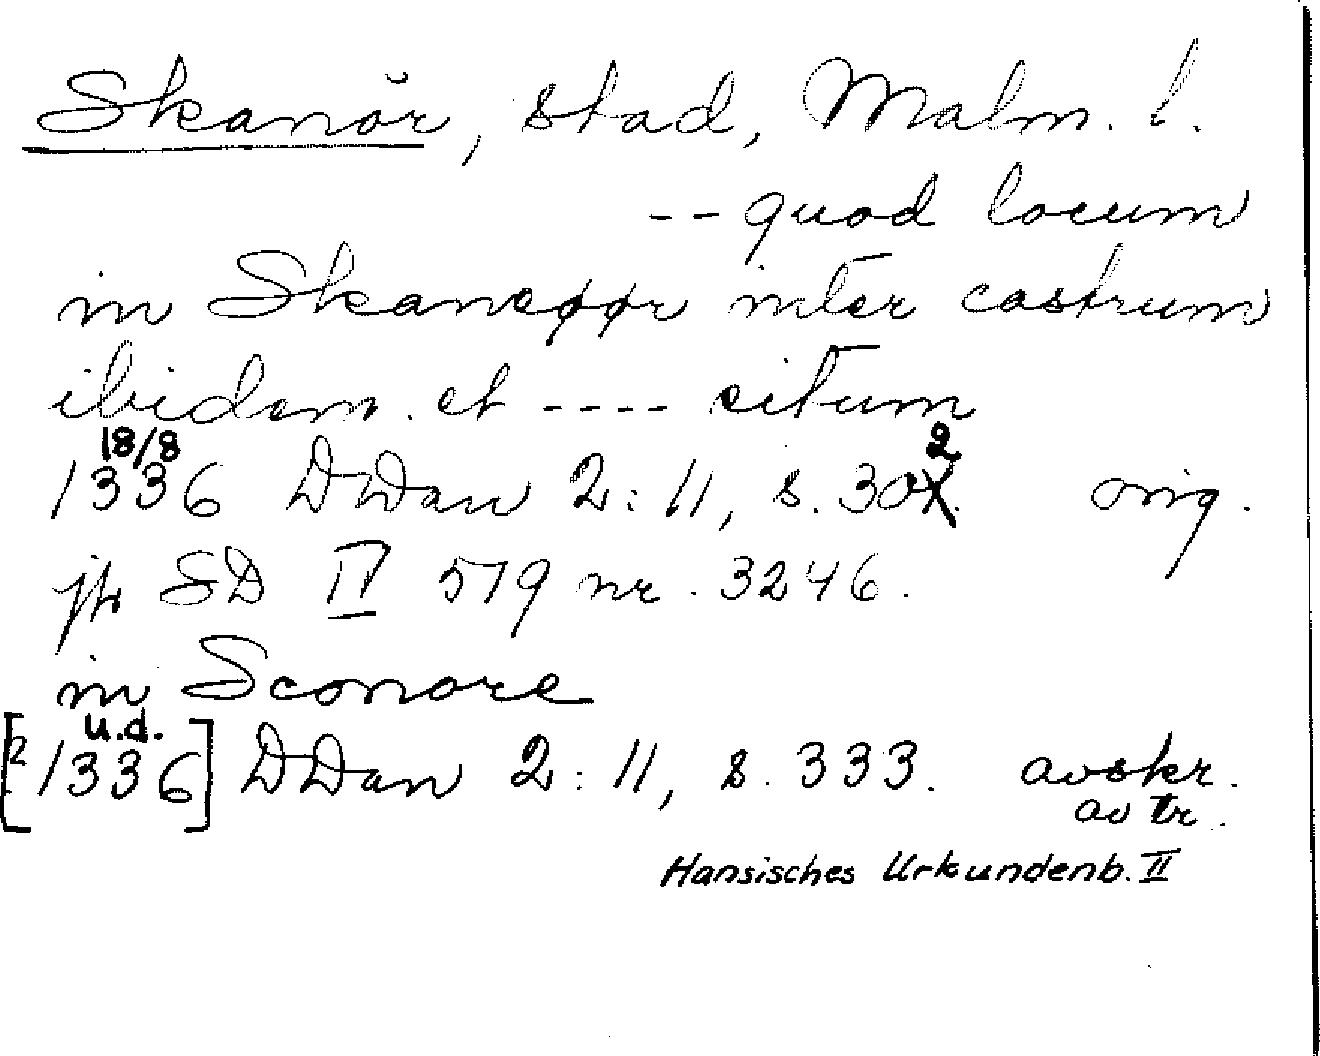 Skanör, stad, Malm. l.
-- quod locum
in Skaneøør inter castrum
ibidem et ---- situm
18/8
1336 DDan 2:11, s. 302 orig.
jfr SD IV 579 nr. 3246.
in Sconore
u.d.
[2 1336] DDan 2:11, s. 333. avskr.
av tr.
Hansisches Urkundenb. II